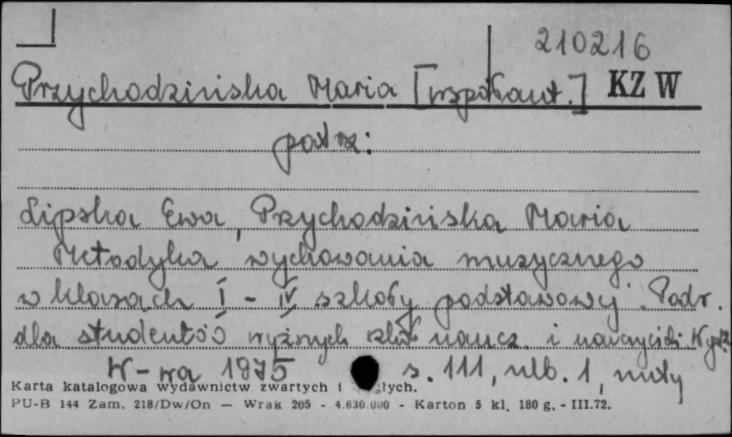 210216
Przychodzińska Maria [współaut.] KZ W
patrz:
Lipska Ewa, Przychodzińska Maria
Metodyka wychowania muzycznego
w klasach I - IV szkoły podstawowej. Podr.
dla studentów wyższych szkół naucz. i nauczycieli
W-wa 1975 s. 111, nlb. 1, nuty
Karta katalogowa wydawnictw zwartych i
PU-B 144 Zam. 218/Dw/On — Wrak 205 - 4.630.000 - Karton 5 kl. 180 g. - III.72.